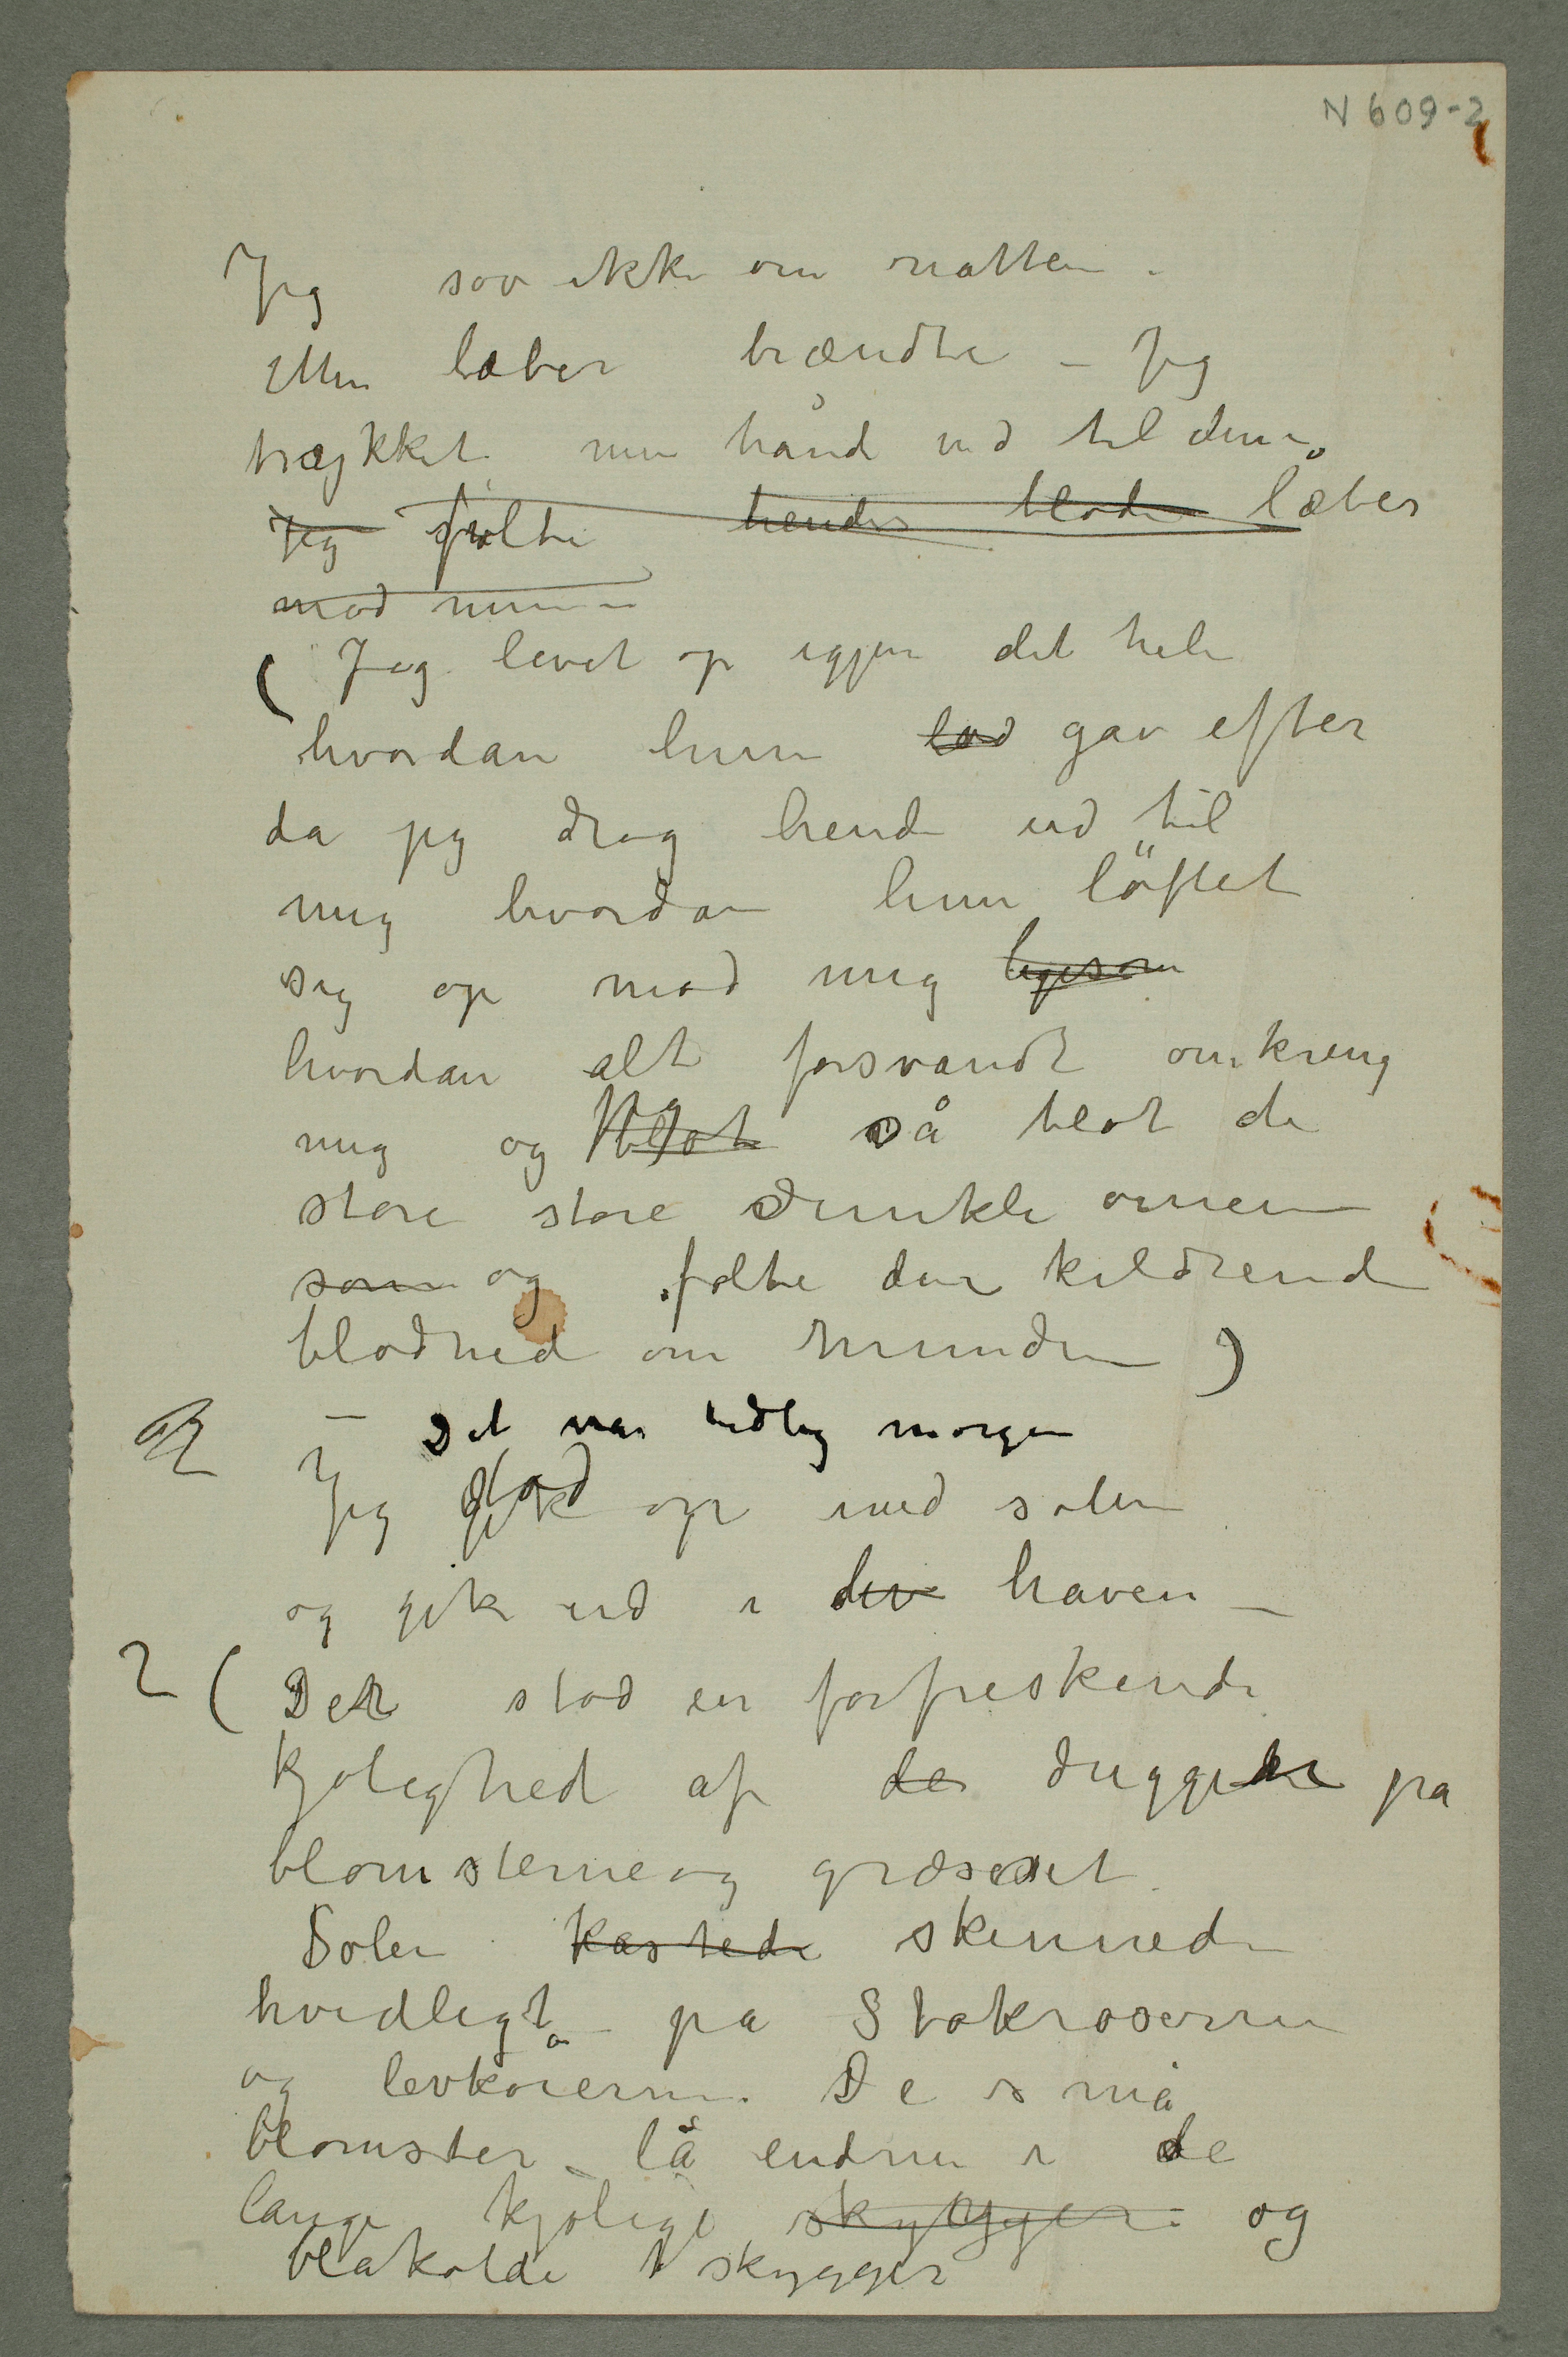 N 609-2
Jeg sov ikke om natten.
Mine læber brændte – Jeg
trykket min hånd ind til dem.
Jeg følte hendes bløde læber
mod mine
( Jeg levet op igjen det hele
hvordan hun lod gav efter
da jeg drog hende ind til
mig hvordan hun löftet
sig op mod mig ligesom
hvordan alt forsvandt omkring
mig og jeg blot så blot de
store store dunkle öinene
som og følte den kildrende
blødhed om munden )
– Det var tidlig morgen
Jeg stod op med solen
og gik ud i den haven –
2 ( Der stod en forfriskende
kjølighed af de duggede på
blomsterne og græsset.
Solen kastede skinnede
hvidligt på Stokroserne
og levkøierne. De små
blomster – lå endnu i de
lange kjølige skygger – og
blåkolde skygger